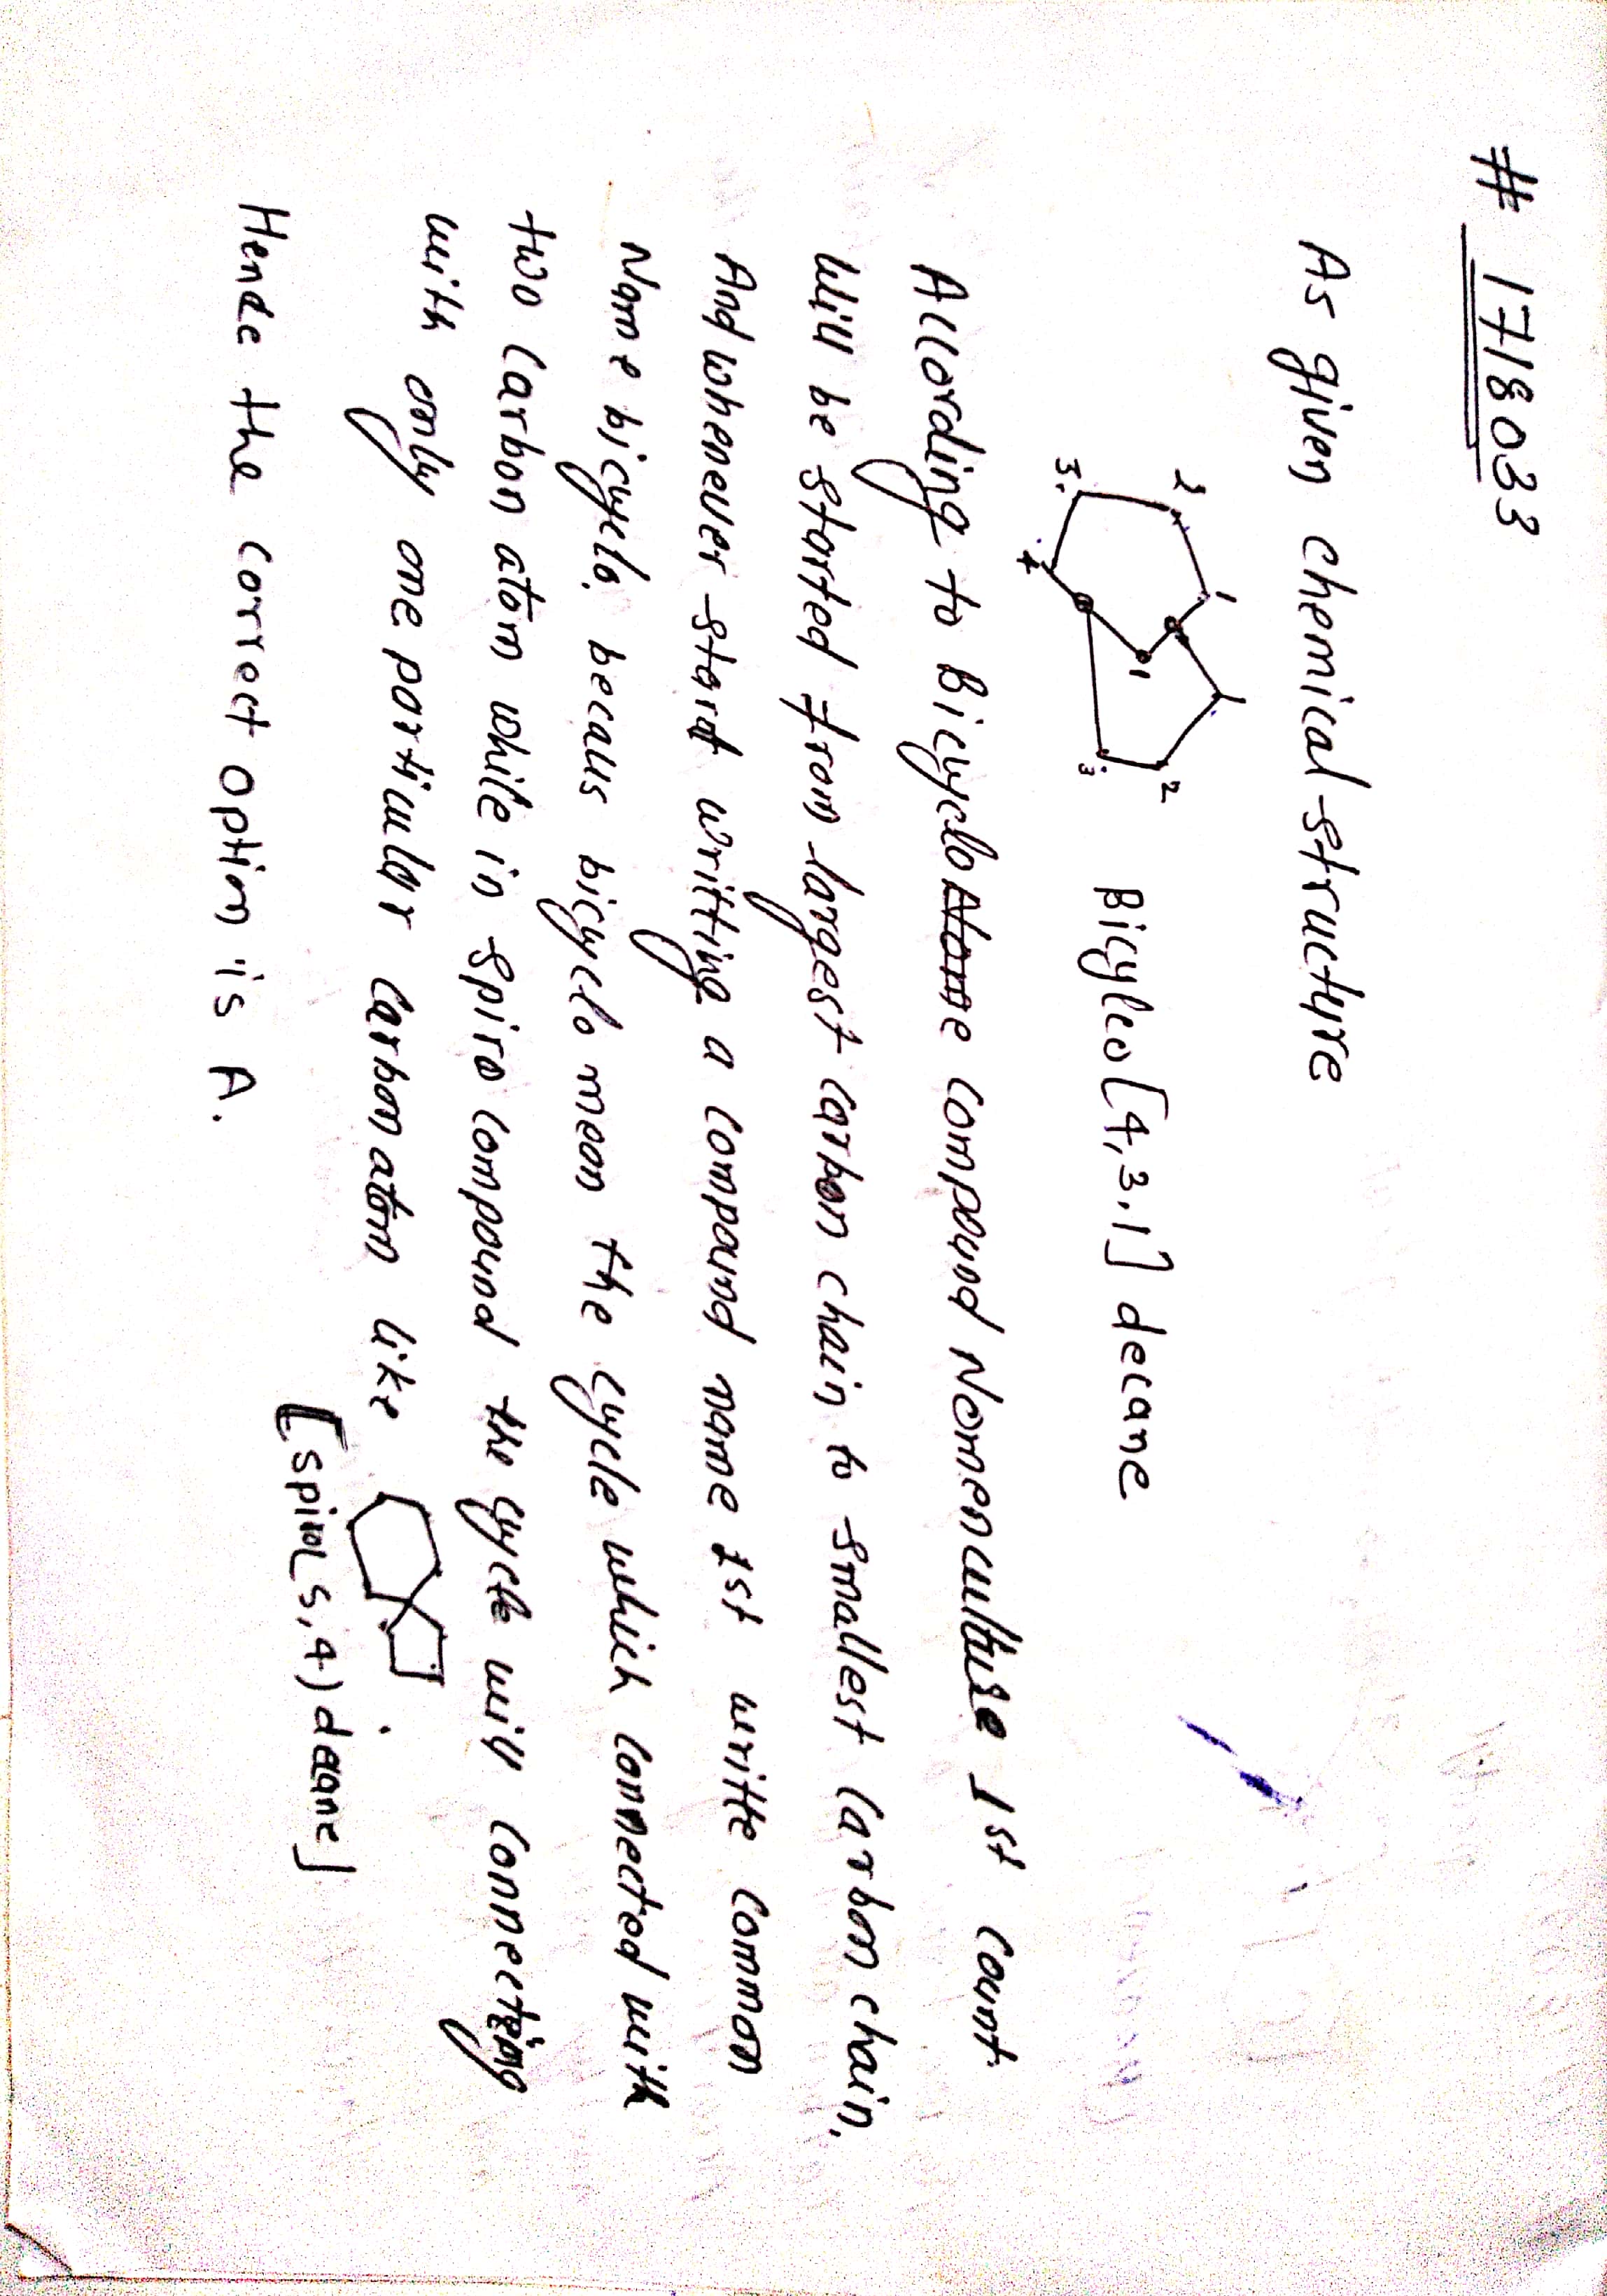 # 1718033
As given chemical structure
1
2
3
4
1
1
2
3
Bicyleo[4,3,1] decane
Allording to Bicyclo Name compound Nomenculture 1st count
will be started from largest carbon chain to smallest carbon chain,
And whenever start writting a compound name 1st writte common
Name bicyclo, becaus bicyclo mean the cycle which connected with
two carbon atom while in spiro compound the cycle will connecting
with only one particular carbon atom like
[spiro(5,4)decane]
Hende the correct option is A.